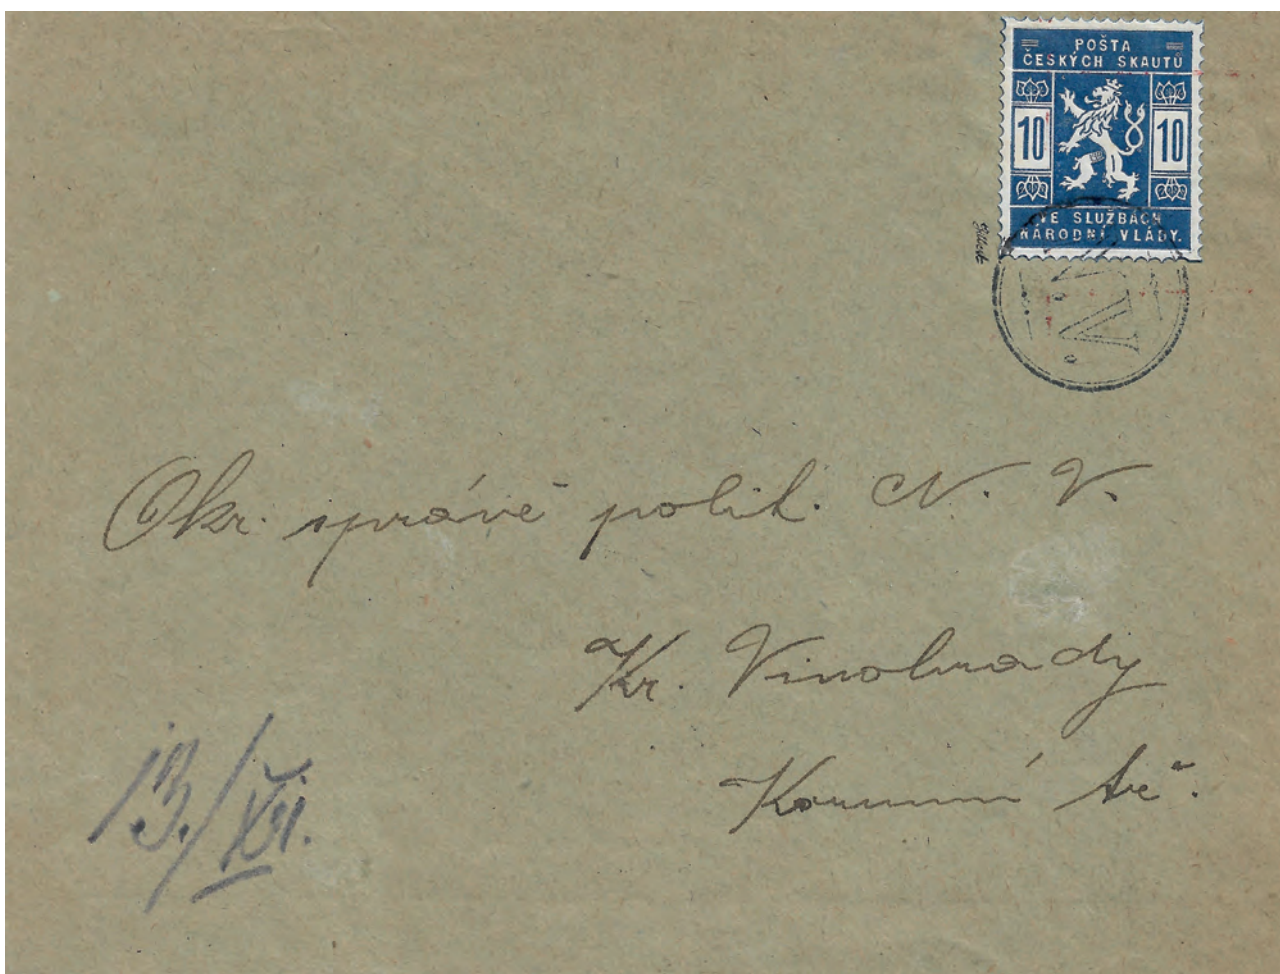 POŠTA
ČESKÝCH SKAUTŮ
10 10
VE SLUŽBÁCH
NÁRODNÍ VLÁDY.
NV
Okr. správě polit. N. V.
Kr. Vinohrady
Korunní tř.
13./XII.